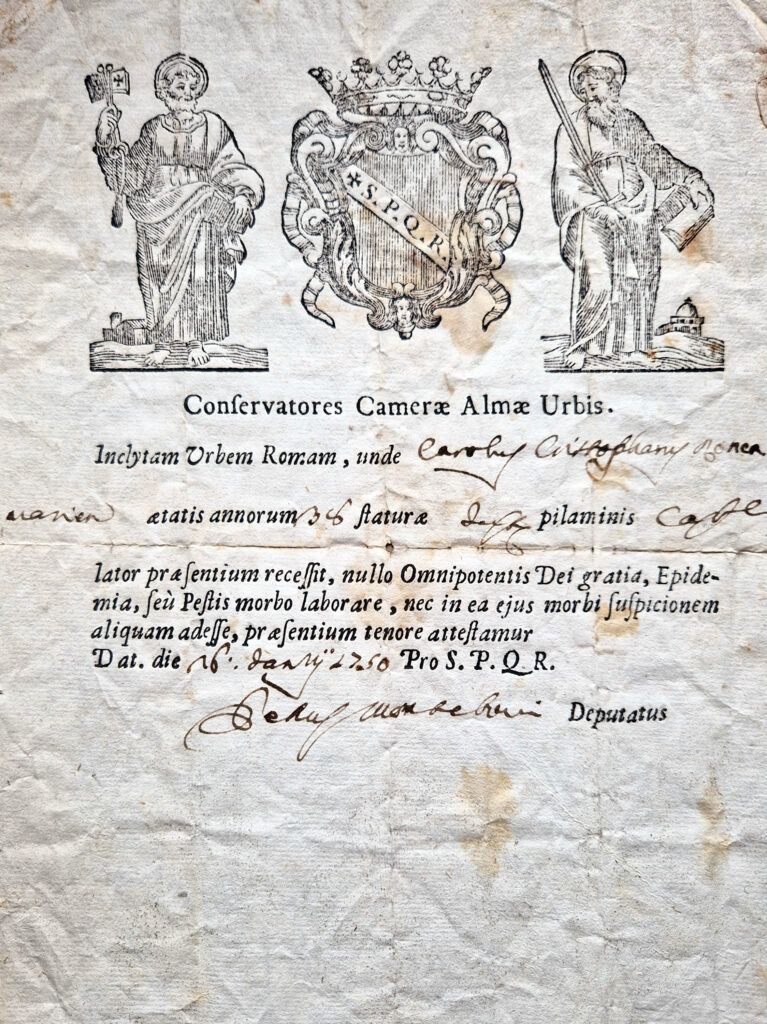 ✠ S. P. Q. R.
Conſervatores Cameræ Almæ Urbis.
Inclytam Vrbem Romam, unde Carolus
ætatis annorum 36 ſtaturæ pilaminis
lator præſentium receſſit, nullo Omnipotentis Dei gratia, Epide-
mia, ſeù Peſtis morbo laborare, nec in ea ejus morbi ſuſpicionem
aliquam adeſſe, præſentium tenore atteſtamur
Dat. die 16. Janrij 1750 Pro S. P. Q. R.
Deputatus